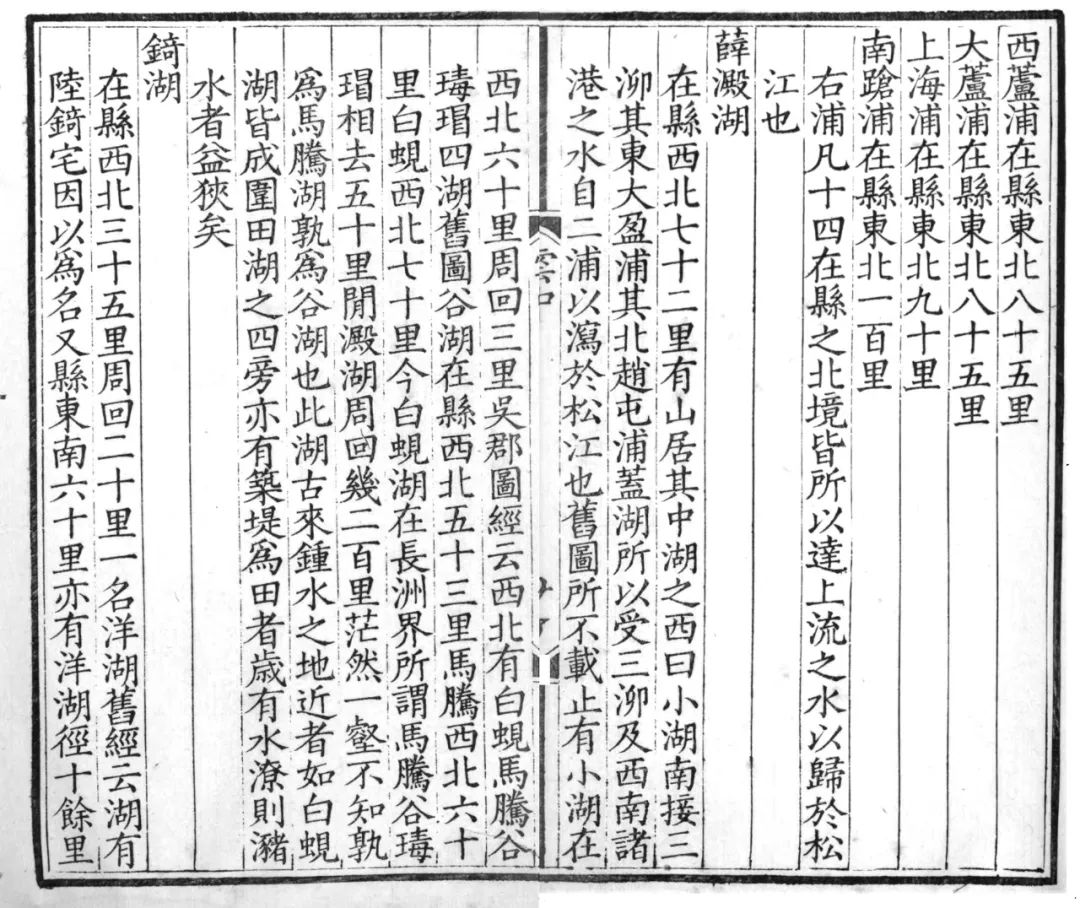 西蘆浦在縣東北八十五里
大蘆浦在縣東北八十五里
上海浦在縣東北九十里
南蹌浦在縣東北一百里
右浦凡十四在縣之北境皆所以達上流之水以歸於松
江也
薛澱湖
在縣西北七十二里有山居其中湖之西曰小湖南接三
泖其東大盈浦其北趙屯浦蓋湖所以受三泖及西南諸
港之水自二浦以瀉於松江也舊圖所不載止有小湖在
西北六十里周回三里吳郡圖經云西北有白蜆馬騰谷
瑇瑁四湖舊圖谷湖在縣西北五十三里馬騰西北六十
里白蜆西北七十里今白蜆湖在長洲界所謂馬騰谷瑇
瑁相去五十里閒澱湖周回幾二百里茫然一壑不知孰
爲馬騰湖孰爲谷湖也此湖古來鍾水之地近者如白蜆
湖皆成圍田湖之四旁亦有築堤爲田者歲有水潦則瀦
水者益狹矣
錡湖
在縣西北三十五里周回二十里一名洋湖舊經云湖有
陸錡宅因以爲名又縣東南六十里亦有洋湖徑十餘里